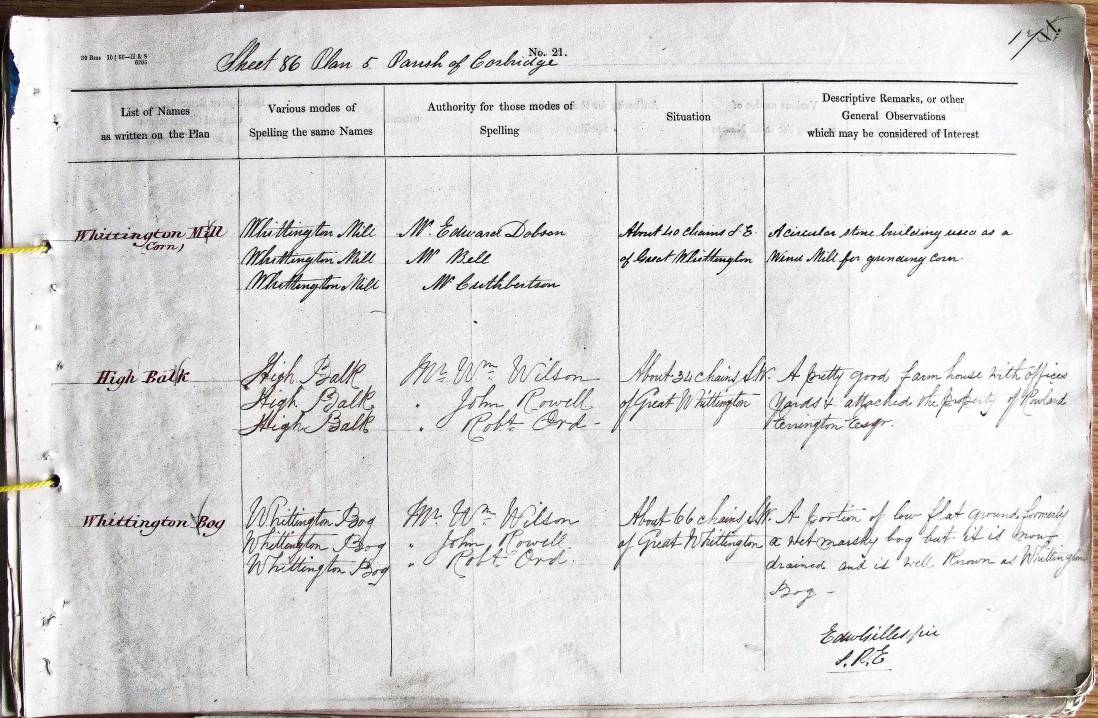 30 Bms 10 | 60—H & S
6205
No. 21.
Sheet 86 Plan 5 Parish of Corbridge
17
List of Names
as written on the Plan
Various modes of
Spelling the same Names
Authority for those modes of
Spelling
Situation
Descriptive Remarks, or other
General Observations
which may be considered of Interest
Whittington Mill
(Corn)
Whittington Mill
Whittington Mill
Whittington Mill
Mr. Edward Dobson
Mr Bell
Mr Cuthbertson
About 40 chains S E
of Great Whittington
A circular stone building used as a
Wind Mill for grinding corn
High Balk
High Balk
High Balk
High Balk
Mr. Wm. Wilson
" John Rowell
" Robt. Ord -
About 34 chains S.W.
of Great Whittington
A pretty good farm house with offices
Yards & attached the property of Rowland
Errington Esqr.
Whittington Bog
Whittington Bog
Whittington Bog
Whittington Bog
Mr. Wm. Wilson
" John Rowell
" Robt. Ord.
About 66 chains S.W.
of Great Whittington
A portion of low flat ground, formerly
a wet marshy bog but it is now
drained and is well known as Whittington
Bog -
Edw Gillespie
S.R.E